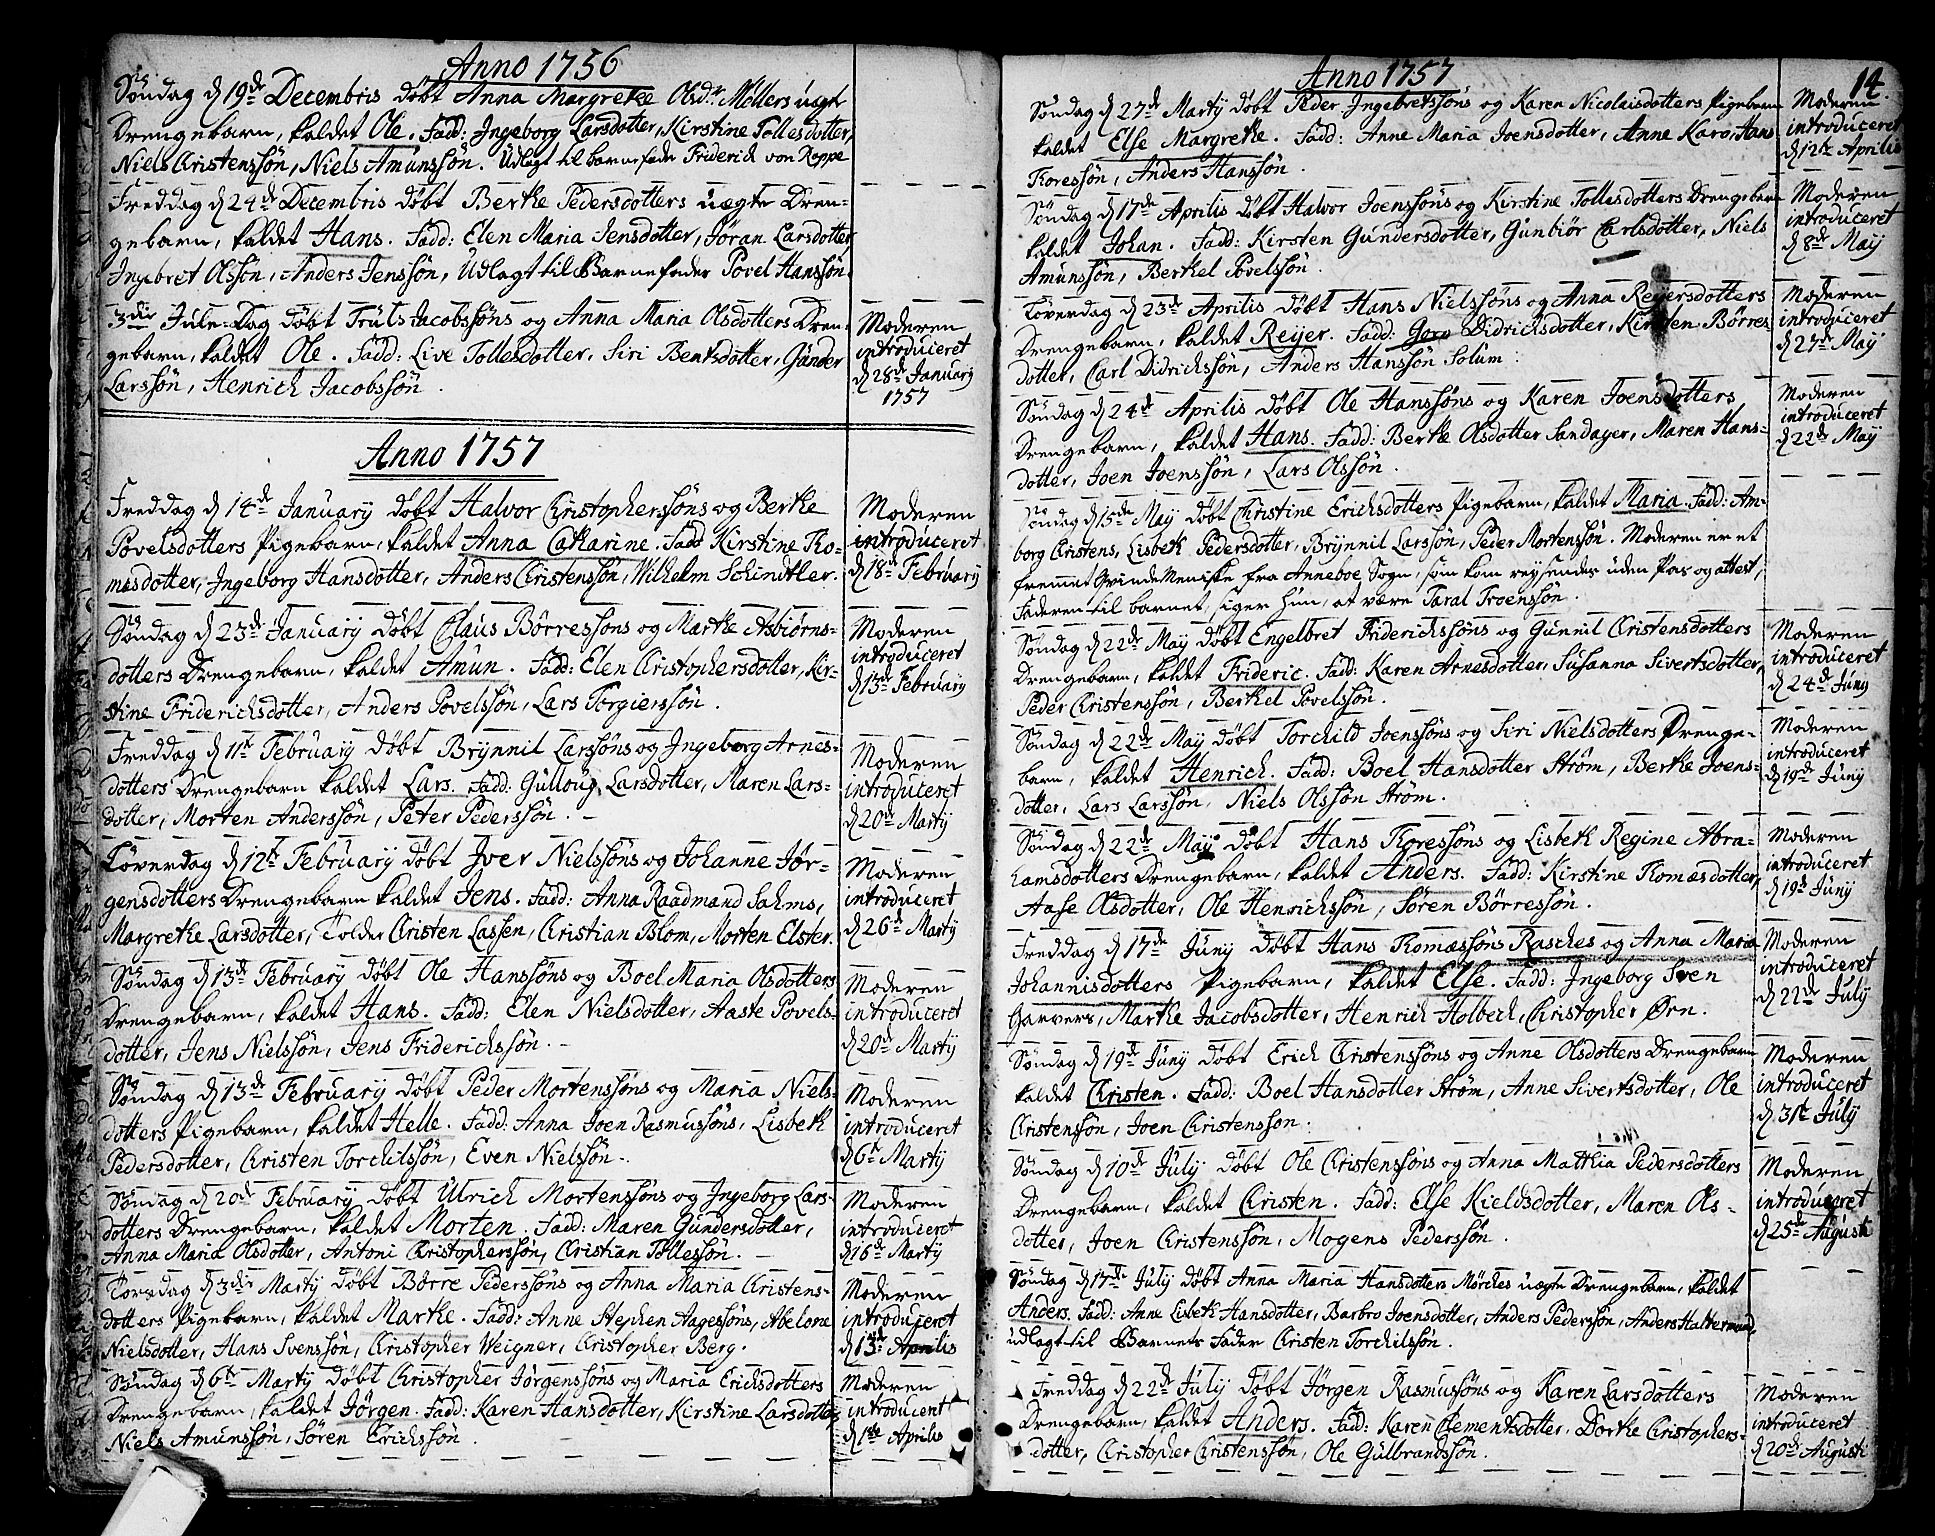 Anno 1756
Søndag d 19de Decembris døbt Anna Margrethe Olsdr Møllers uægte
Drengebarn, kaldet Ole. Fadd: Ingeborg Larsdotter, Kirstine Tollesdotter,
Niels Christenssøn, Niels Amunssøn. Udlagt til barnefader Friderich von Roppe
Freddag d 24de Decembris døbt Berthe Pedersdotters uægte Dren-
gebarn, kaldet Hans. Fadd: Elen Maria Jensdotter, Jøran Larsdotter
Ingebret Olssøn, Anders Jenssøn, Udlagt til Barnefader Povel Hanssøn.
3die Jule-Dag døbt Truls Jacobssøns og Anna Maria Olsdotters Dren-
gebarn, kaldet Ole. Fadd: Live Tollesdotter, Siri Bentsdotter, Gunder
Larssøn, Henrich Jacobssøn.
Moderen
introduceret
d 28de January
1757
Anno 1757
Freddag d 14de January døbt Halvor Christopherssøns og Berthe
Povelsdotters Pigebarn, kaldet Anna Catharine. Fadd Kirstine Tho-
mesdotter, Ingeborg Hansdotter, Anders Christenssøn, Wilhelm Schindtler.
Moderen
introduceret
d 18de February
Søndag d 23de January døbt Claus Børressøns og Marthe Asbiørns-
dotters Drengebarn, kaldet Amun. Fadd: Elen Christophersdotter, Kir-
stine Friderichsdotter, Anders Povelssøn, Lars Torgierssøn.
Moderen
introduceret
d 13de February
Freddag d 11te February døbt Brynnil Larssøns og Ingeborg Arnes-
dotters Drengebarn kaldet Lars. Fadd: Gulloug Larsdotter, Maren Lars-
dotter, Morten Anderssøn, Peter Pederssøn.
Moderen
introduceret
d 20de Marty
Løverdag d 12te February døbt Iver Nielssøns og Johanne Jør-
gensdotters Drengebarn kaldet Jens. Fadd: Anna Raadmand Sahms,
Margrethe Larsdotter, Tolder Christen Lassen, Christian Blom, Morten Elster.
Moderen
introduceret
d 26de Marty
Søndag d 13de February døbt Ole Hanssøns og Boel Maria Olsdotters
Drengebarn, kaldet Hans. Fadd: Elen Nielsdotter, Aaste Povels-
dotter, Jens Nielssøn, Jens Friderichssøn.
Moderen
introduceret
d 20de Marty
Søndag d 13de February døbt Peder Mortenssøns og Maria Niels-
dotters Pigebarn, kaldet Helle. Fadd: Anna Joen Rasmussøns, Lisbeth
Pedersdotter, Christen Torchilssøn, Even Nielssøn.
Moderen
introduceret
d 6te Marty
Søndag d 20de February døbt Ulrich Mortenssøns og Ingeborg Lars-
dotters Drengebarn, kaldet Morten. Fadd: Maren Gundersdotter,
Anna Maria Olsdotter, Antoni Christopherssøn, Christian Tollessøn.
Moderen
introduceret
d 16de Marty
Torsdag d 3die Marty døbt Børre Pederssøns og Anna Maria Christens-
dotters Pigebarn, kaldet Marthe. Fadd: Anne Stephen Aagessøns, Abelone
Nielsdotter, Hans Svenssøn, Christopher Weigner, Christopher Berg.
Moderen
introduceret
d 13de Aprilis
Søndag d 6te Marty døbt Christopher Jørgenssøns og Maria Erichsdotters
Drengebarn, kaldet Jørgen. Fadd: Karen Hansdotter, Kirstine Larsdotter,
Niels Amunssøn, Søren Erichssøn.
Moderen
introducent
d 1ste Aprilis
Anno 1757
14
Søndag d 27de Marty døbt Peder Ingebretssøns og Karen Nicolaisdotters Pigebarn
kaldet Else Margrethe. Fadd: Anne Maria Joensdotter, Anne Karo, Hans
Thoressøn, Anders Hanssøn.
Moderen
introduceret
d 12te Aprilis
Søndag d 17de Aprilis døbt Halvor Joenssøns og Kirstine Tollesdotters Drengebarn
kaldet Johan. Fadd: Kirsten Gundersdotter, Gunbiør Carlsdotter, Niels
Amunssøn, Berthel Povelssøn.
Moderen
introduceret
d 8de May
Løverdag d 23de Aprilis døbt Hans Nielssøns og Anna Reyersdotters
Drengebarn, kaldet Reyer. Fadd: Goro Didrichsdotter, Kirsten Børres
dotter, Carl Didrichssøn, Anders Hanssøn Solum.
Moderen
introduceret
d 27de May
Søndag d 24de Aprilis døbt Ole Hanssøns og Karen Joensdotters
Drengebarn, kaldet Hans. Fadd: Berthe Olsdotter Sandager, Maren Hans-
dotter, Joen Joenssøn, Lars Olssøn.
Moderen
introduceret
d 22de May
Søndag d 15de May døbt Christine Erichsdotters Pigebarn, kaldet Maria. Fadd: Am-
borg Christens, Lisbeth Pedersdotter, Brynnil Larssøn, Peder Mortenssøn. Moderen er et
fremmet Qvinde Menische fra Anneboe Sogn, som kom reysendes uden Pas og attest,
Faderen til barnet, siger hun, at være Taral Troenssøn.
Søndag d 22de May døbt Engelbret Friderichssøns og Gunnil Christensdotters
Drengebarn, kaldet Frideric. Fadd: Karen Arnesdotter, Susanna Sivertsdotter,
Peder Christenssøn, Berthel Povelssøn.
Moderen
introduceret
d 24de Juny
Søndag d 22de May døbt Torchild Joenssøns og Siri Nielsdotters Drenge-
barn, kaldet Henrich. Fadd: Boel Hansdotter Strøm, Berthe Joens-
dotter, Lars Larssøn, Niels Olssøn Strøm.
Moderen
introduceret
d 19de Juny
Søndag d 22de May døbt Hans Thoressøns og Lisbeth Regine Abra-
hamsdotters Drengebarn, kaldet Anders. Fadd: Kirstine Thomæsdotter,
Aase Olsdotter, Ole Henrichssøn, Søren Børressøn.
Moderen
introduceret
d 19de Juny
Freddag d 17de Juny døbt Hans Thomæssøns Rasches og Anna Maria
Johannisdotters Pigebarn, kaldet Else. Fadd: Ingeborg Sven
Garvers, Marthe Jacobsdotter, Henrich Holbech, Christopher Ørn.
Moderen
introduceret
d 22de July
Søndag d 19de Juny døbt Erich Christenssøns og Anne Olsdotters Drengebarn
kaldet Christen. Fadd: Boel Hansdotter Strøm, Anne Sivertsdotter, Ole
Christenssøn, Joen Christenssøn.
Moderen
introduceret
d. 31te July
Søndag d 10de July døbt Ole Christenssøns og Anna Matthia Pedersdotters
Drengebarn, kaldet Christen. Fadd: Else Kieldsdotter, Maren Ols-
dotter, Joen Christenssøn, Mogens Pederssøn.
Moderen
introduceret
d 25de Augusti
Søndag d 17de July døbt Anna Maria Hansdotters Mørches uægte Drengebarn, kaldet
Anders. Fadd: Anne Lisbeth Hansdotter, Barbro Joensdotter, Anders Pederssøn, Anders Halternand,
udlagt til Barnets Fader Christen Torchilssøn.
Freddag d 22de July døbt Jørgen Rasmussøns og Karen Larsdotters
Drengebarn, kaldet Anders. Fadd: Karen Clementsdotter, Dorthe Christophers-
dotter, Christopher Christenssøn, Ole Gulbrandssøn.
Moderen
introduceret
d 20de Augusti